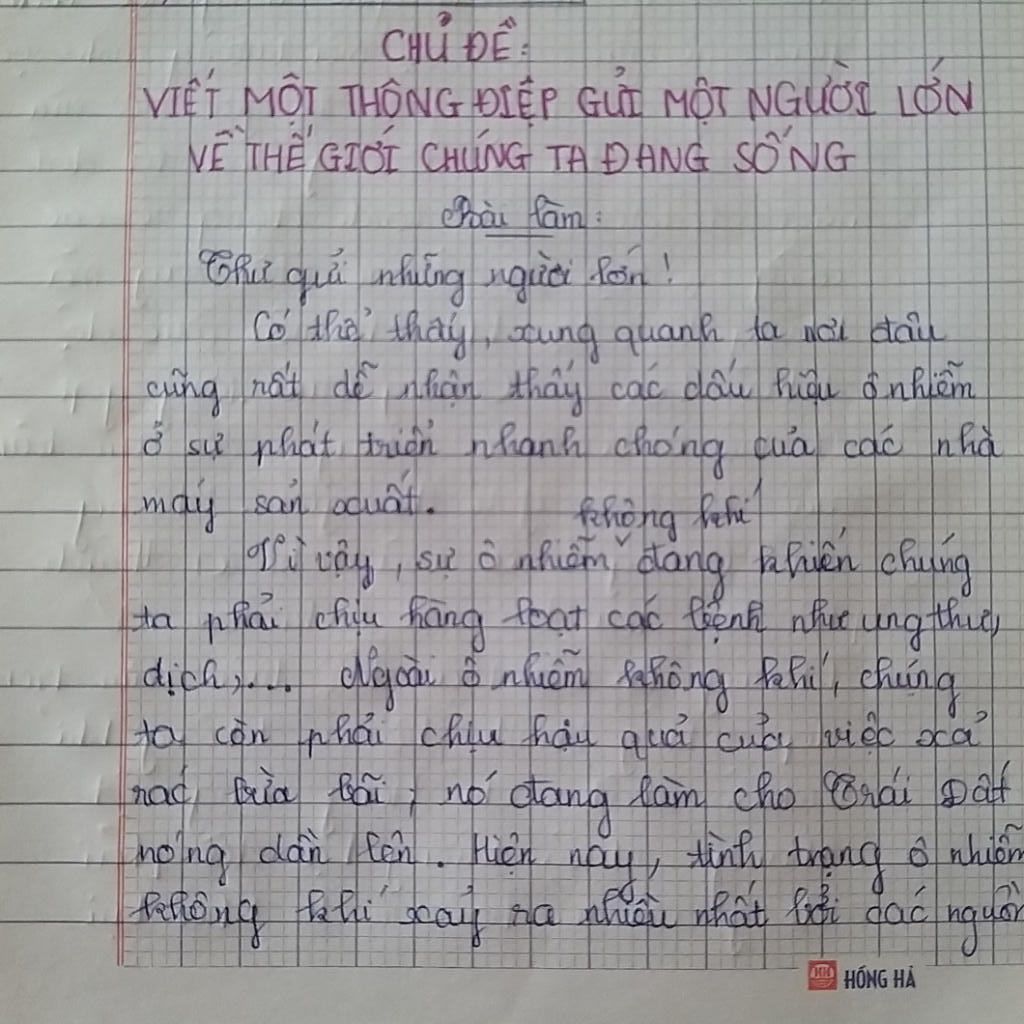 CHỦ ĐỀ:
VIẾT MỘT THÔNG ĐIỆP GỬI MỘT NGƯỜI LỚN
VỀ THẾ GIỚI CHÚNG TA ĐANG SỐNG
Bài làm:
Thư quả những người lớn!
Có thể thấy, xung quanh ta nơi đâu
cũng rất dễ nhận thấy các dấu hiệu ô nhiễm
ở sự phát triển nhanh chóng của các nhà
máy sản xuất.
không khí
Vì vậy, sự ô nhiễm ˅ đang khiến chúng
ta phải chịu hàng loạt các bệnh như ung thư,
dịch,... Ngoài ô nhiễm không khí, chúng
ta còn phải chịu hậu quả của việc xả
rác bừa bãi, nó đang làm cho Trái Đất
nóng dần lên. Hiện nay, tình trạng ô nhiễm
không khí xảy ra nhiều nhất bởi các nguồn
HỒNG HÀ